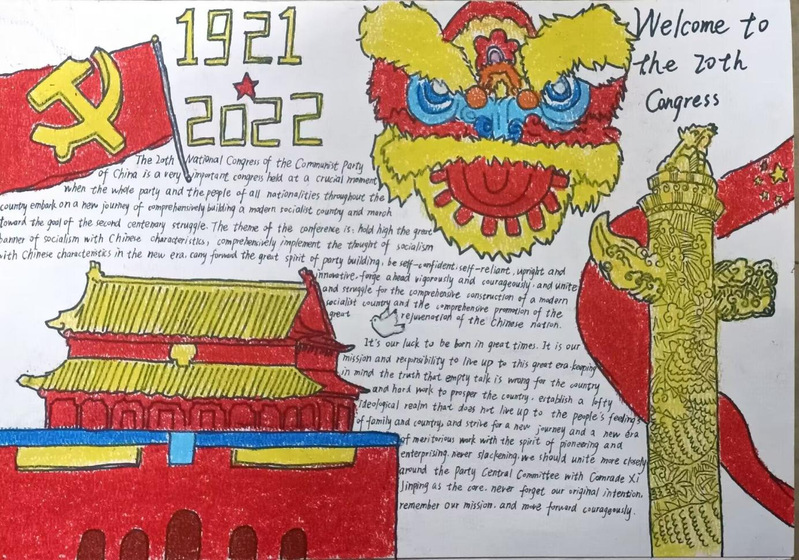 1921
2022
Welcome to
the 20th
Congress
The 20th National Congress of the Communist Party
of China is a very important congress held at a crucial moment
when the whole party and the people of all nationalities throughout the
country embark on a new journey of comprehensively building a modern socialist country and march
toward the goal of the second centenary struggle. The theme of the conference is: hold high the great
banner of socialism with Chinese characteristics, comprehensively implement the thought of socialism
with Chinese characteristics in the new era, carry forward the great spirit of party building, be self-confident, self-reliant, upright and
innovative, forge ahead vigorously and courageously, and unite
and struggle for the comprehensive construction of a modern
socialist country and the comprehensive promotion of the
great rejuvenation of the Chinese nation.
It's our luck to be born in great times. It is our
mission and responsibility to live up to this great era. keeping
in mind the truth that empty talk is wrong for the country
and hard work to prosper the country, establish a lofty
ideological realm that does not live up to the people's feelings
of family and country, and strive for a new journey and a new era
of meritorious work with the spirit of pioneering and
enterprising, never slackening. we should unite more closely
around the Party Central Committee with Comrade Xi
Jinping as the core, never forget our original intention,
remember our mission, and move forward courageously.